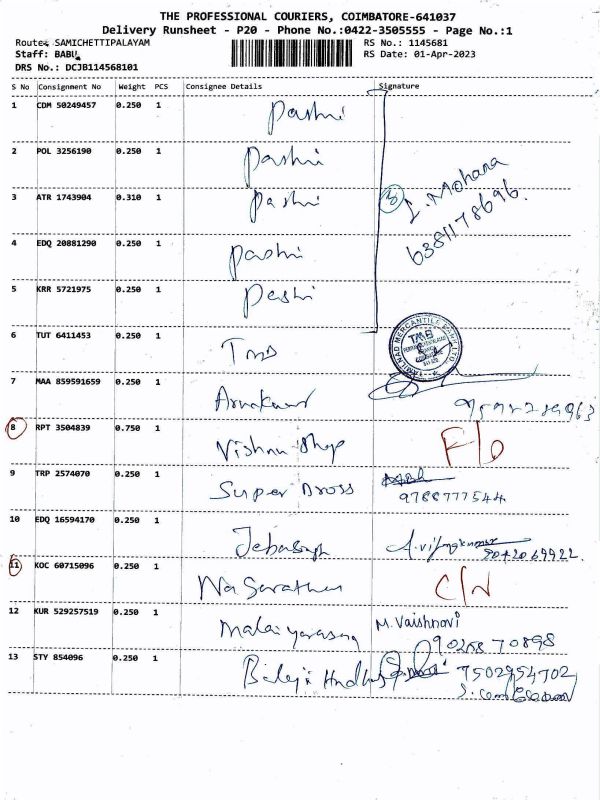 THE PROFESSIONAL COURIERS, COIMBATORE-641037
Delivery Runsheet - P20 - Phone No.:0422-3505555 - Page No.:1
Route: SAMICHETTIPALAYAM RS No.: 1145681
Staff: BABU RS Date: 01-Apr-2023
DRS No.: DCJB114568101
S No Consignment No Weight PCS Consignee Details Signature
1 CDM 50249457 0.250 1 Pashi
2 POL 3256190 0.250 1 Pashi
3 ATR 1743904 0.310 1 Pashi I. Mohana
6381178696
4 EDQ 20881290 0.250 1 Pashi
5 KRR 5721975 0.250 1 Pashi
6 TUT 6411453 0.250 1 TMB TAMILNAD MERCANTILE BANK LTD TMB
7 MAA 859591659 0.250 1
8 RPT 3504839 0.750 1 Vishnu Shop
9 TRP 2574070 0.250 1 Super Dross
9788777544
10 EDQ 16594170 0.250 1 Jebasingh A.vijayakumar
11 KOC 60715096 0.250 1 C/N
12 KUR 529257519 0.250 1 Malaiyarasan M. Vaishnavi
90268 70898
13 STY 854096 0.250 1 Balaji 7502954702